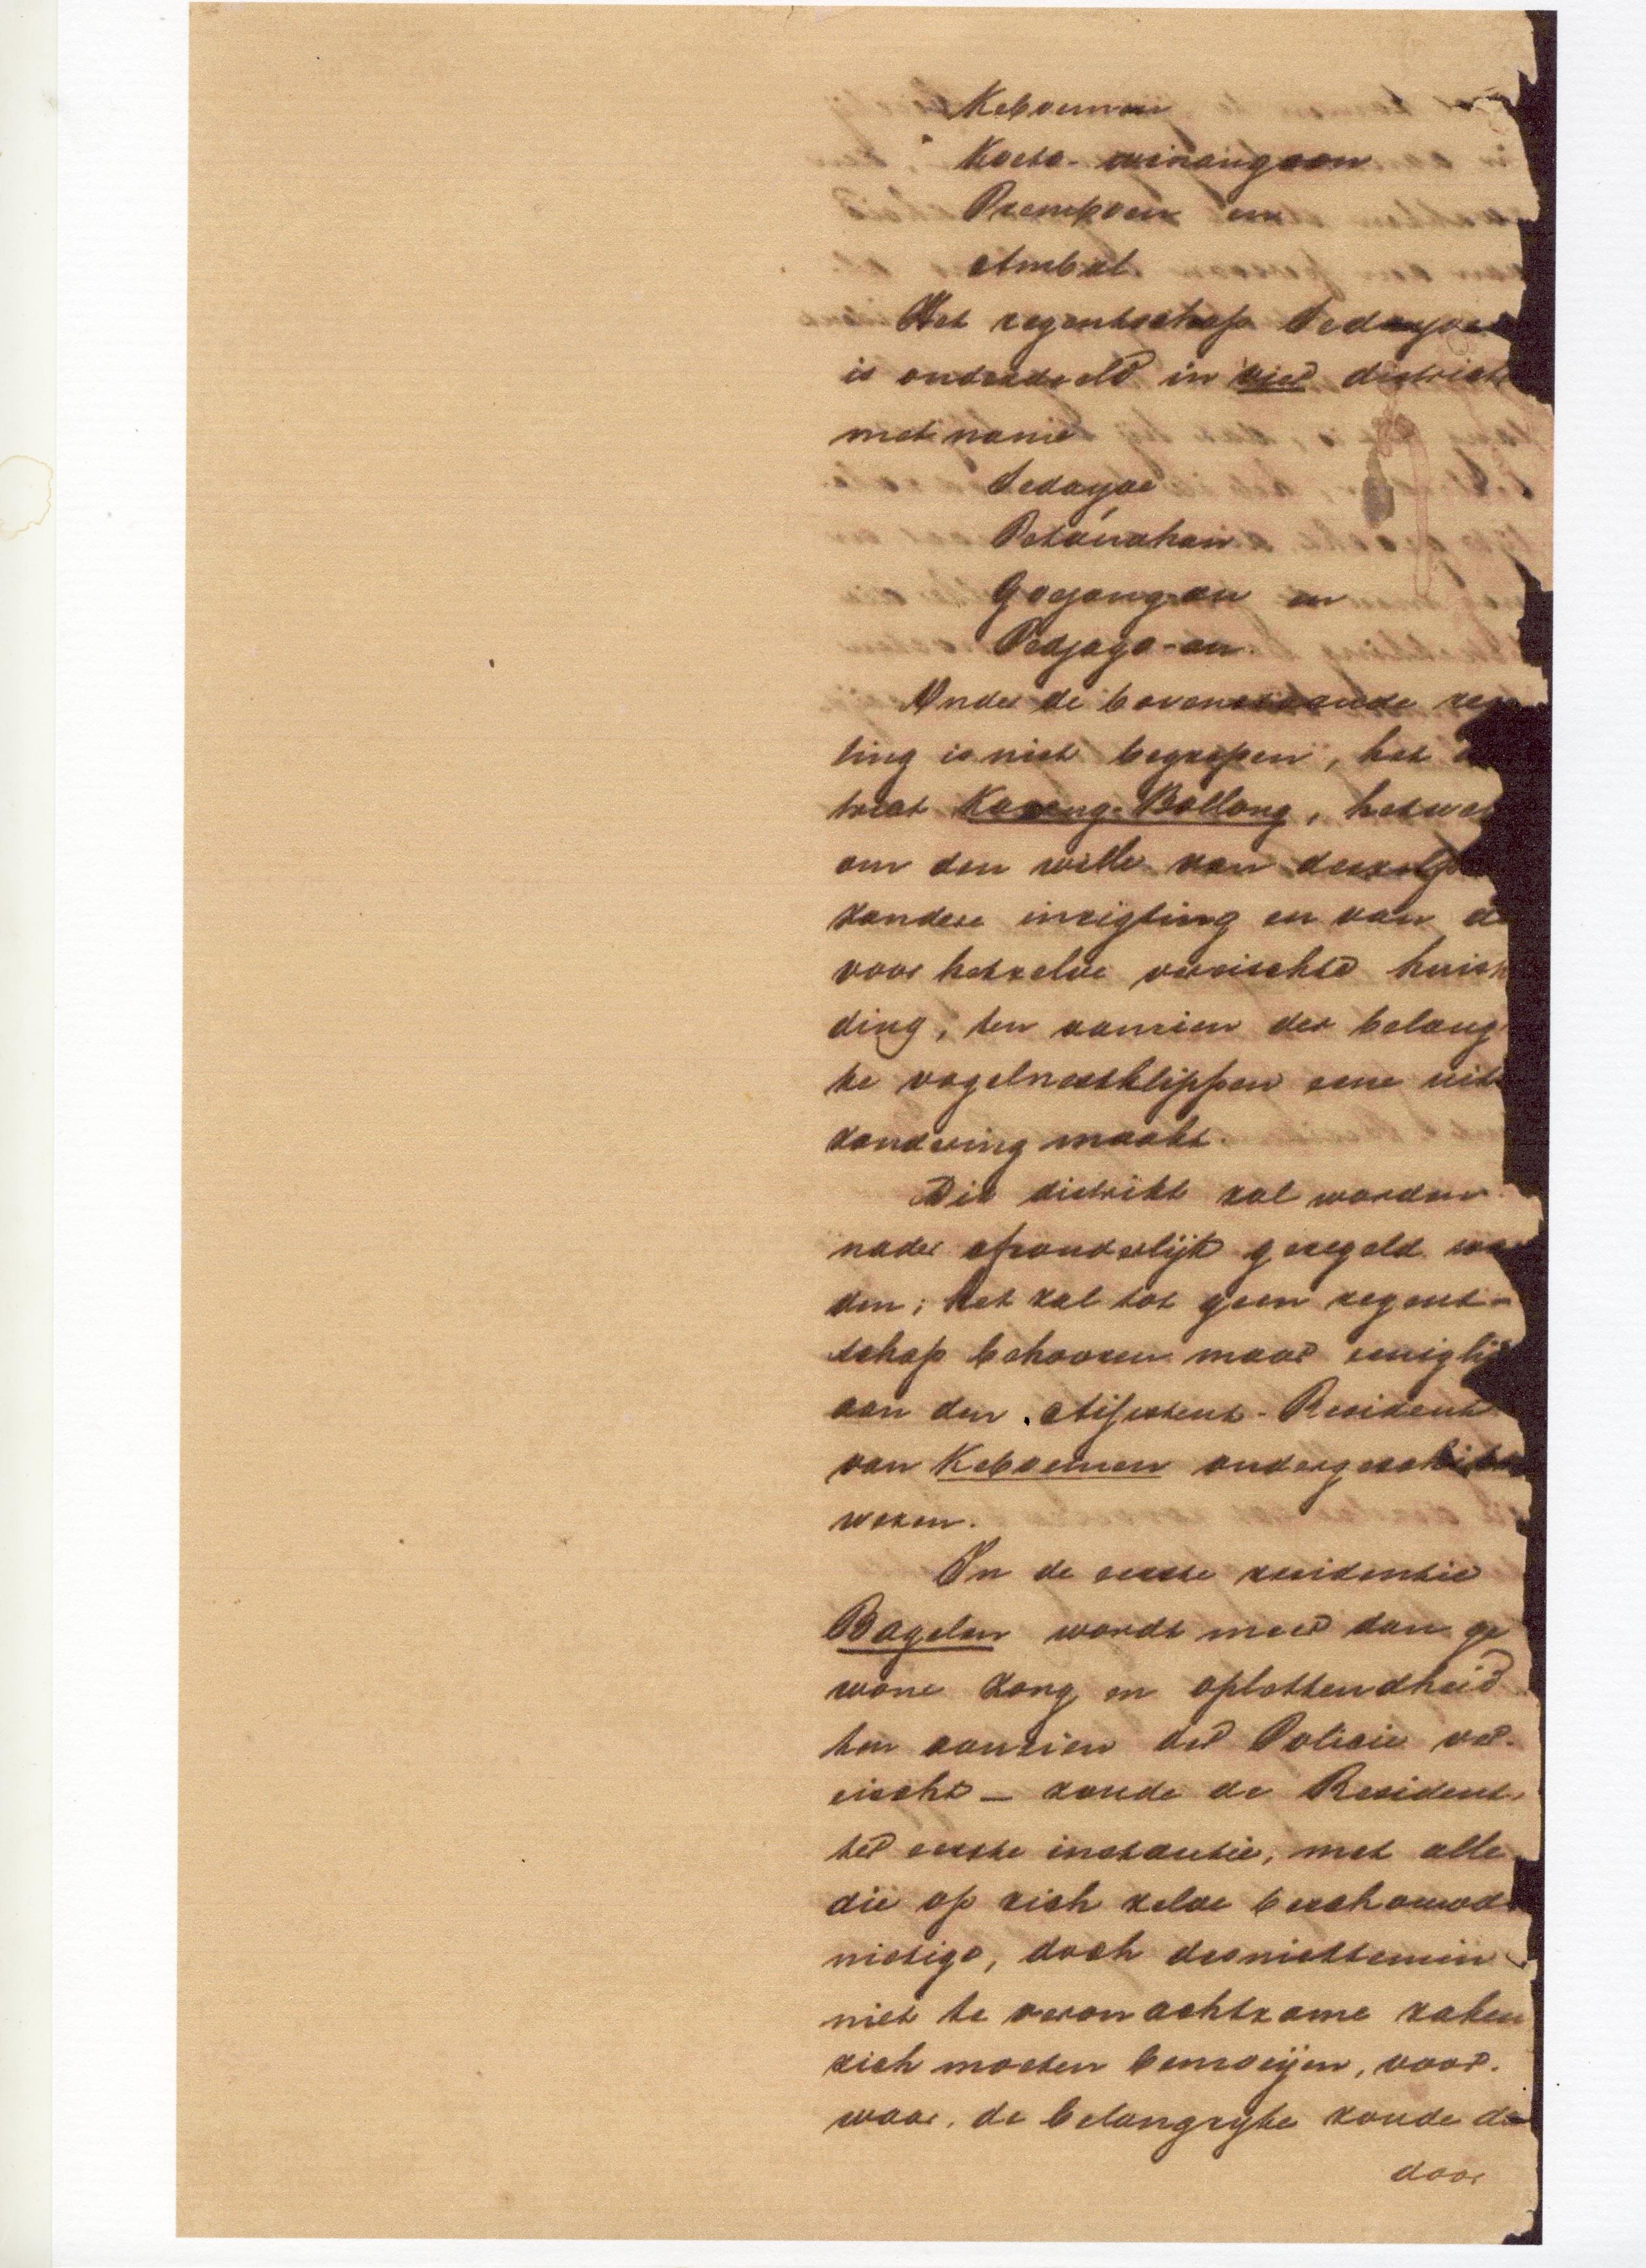 Keboemen
Koeto-winangoon
Prempoen en
Ambal.
Het regentschap Sedayoe
is onderdeeld in vier district
met name
Sedayoe
Petánahan
Gogongan en
Pedjago-an.
Onder de bovenstaande rege
ling is niet begrepen, het
trict Karang-Bollong, hetwel
om den wille van deszelfs
zondere inrigting en van de
voor hetzelve vereischte huish
ding, ten aanzien der belang
te vogelnestklippen eene uit
zondering maakt.
Dit distrikt zal worden
nader afzonderlijk geregeld wor
den; het zal tot geen regent-
schap behooren maar eeniglijk
aan den Assistent-Resident
van Keboemen ondergeschikt
wezen.
In de eerste residentie
Bagelen wordt meer dan ge
wone zorg en oplettendheid
ten aanzien der Policie ver-
eischt – zoude de Resident,
ter eerste instantie, met alle
die op zich zelve beschouwd
nietige, doch desniettemin
niet te veronachtzame zaken
zich moeten bemoeijen, voor-
waar, de belangryke zoude da
door